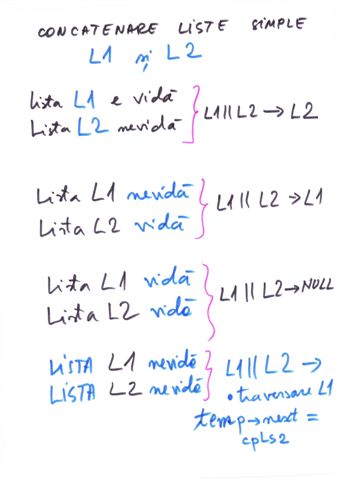 CONCATENARE LISTE SIMPLE
L1 și L2
Lista L1 e vidă
Lista L2 nevidă
L1 || L2 → L2
Lista L1 nevidă
Lista L2 vidă
L1 || L2 → L1
Lista L1 vidă
Lista L2 vidă
L1 || L2 → NULL
LISTA L1 nevidă
LISTA L2 nevidă
L1 || L2 →
• traversare L1
temp → next =
cpLs2